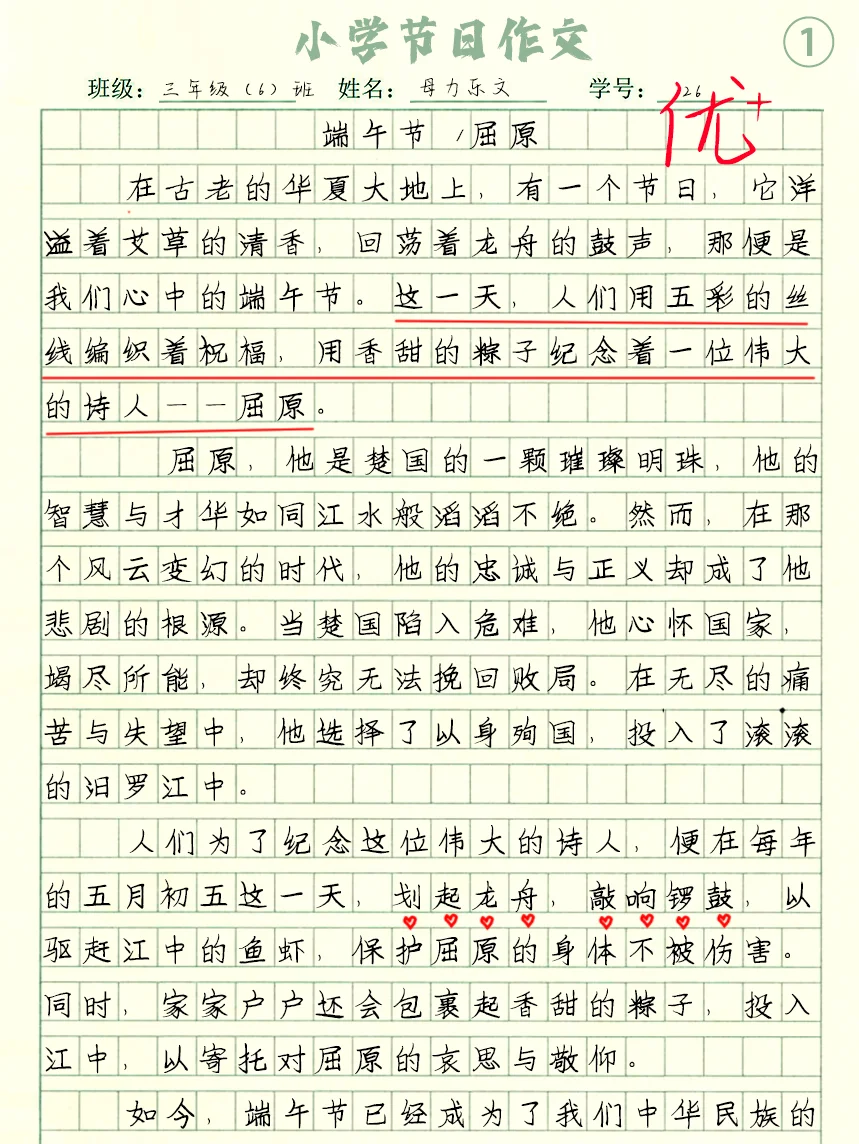 小学节日作文
1
班级：三年级（6）班 姓名：母力乐文 学号：26
优+
端午节/屈原
在古老的华夏大地上，有一个节日，它洋
溢着艾草的清香，回荡着龙舟的鼓声，那便是
我们心中的端午节。这一天，人们用五彩的丝
线编织着祝福，用香甜的粽子纪念着一位伟大
的诗人——屈原。
屈原，他是楚国的一颗璀璨明珠，他的
智慧与才华如同江水般滔滔不绝。然而，在那
个风云变幻的时代，他的忠诚与正义却成了他
悲剧的根源。当楚国陷入危难，他心怀国家，
竭尽所能，却终究无法挽回败局。在无尽的痛
苦与失望中，他选择了以身殉国，投入了滚滚
的汨罗江中。
人们为了纪念这位伟大的诗人，便在每年
的五月初五这一天，划起龙舟，敲响锣鼓，以
驱赶江中的鱼虾，保护屈原的身体不被伤害。
同时，家家户户还会包裹起香甜的粽子，投入
江中，以寄托对屈原的哀思与敬仰。
如今，端午节已经成为了我们中华民族的